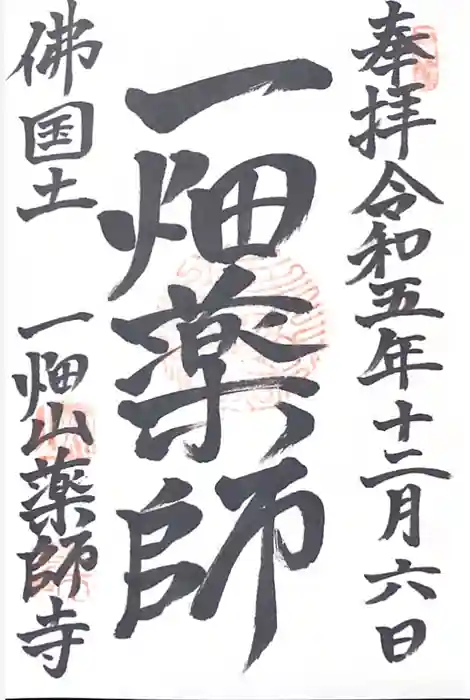 奉拝 令和五年十二月六日
一畑薬師
佛国土
一畑山薬師寺